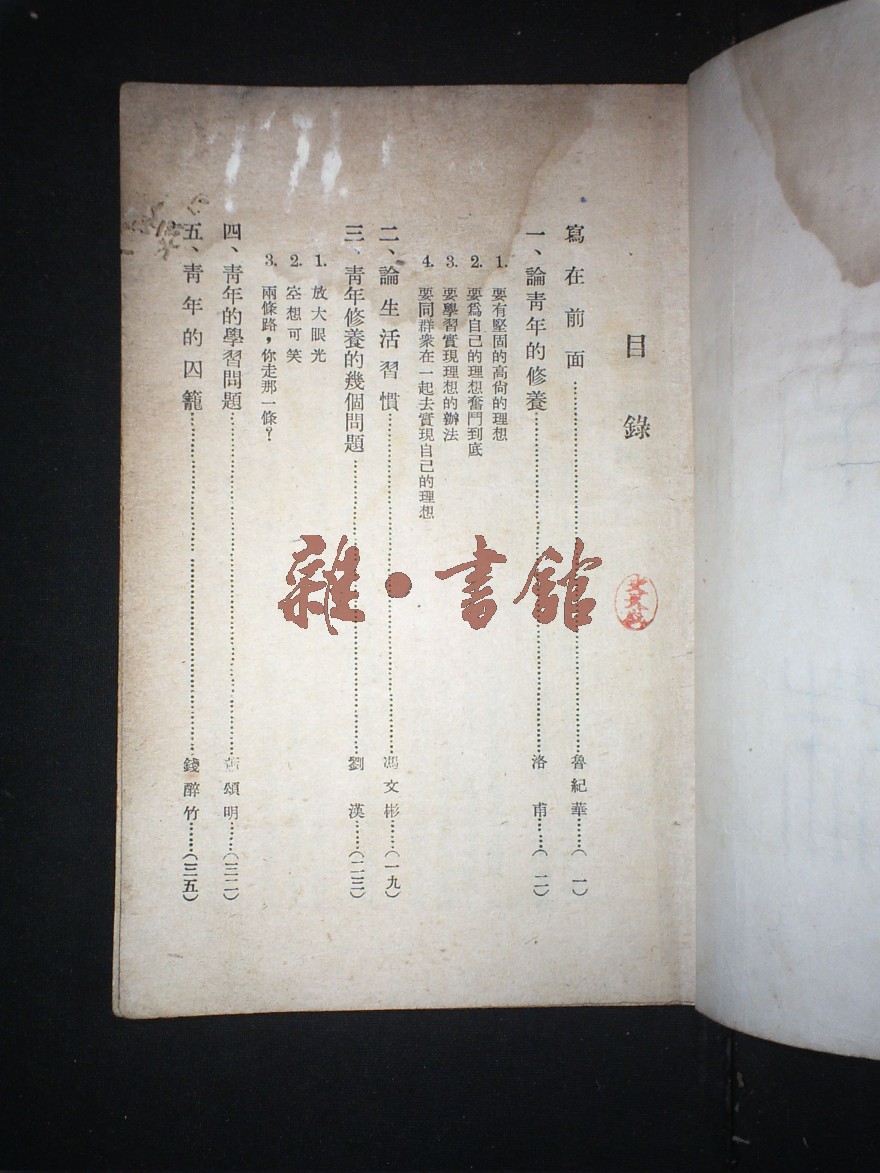 目錄
寫在前面……魯紀華……(一)
一、論靑年的修養……洛甫……(二)
1. 要有堅固的高尙的理想
2. 要爲自己的理想奮鬥到底
3. 要學習實現理想的辦法
4. 要同群衆在一起去實現自己的理想
二、論生活習慣……馮文彬……(一九)
三、靑年修養的幾個問題……劉漢……(二三)
1. 放大眼光
2. 空想可笑
3. 兩條路，你走那一條？
四、靑年的學習問題……頌明……(三二)
五、靑年的囚籠……錢醉竹……(三五)
雜·書館